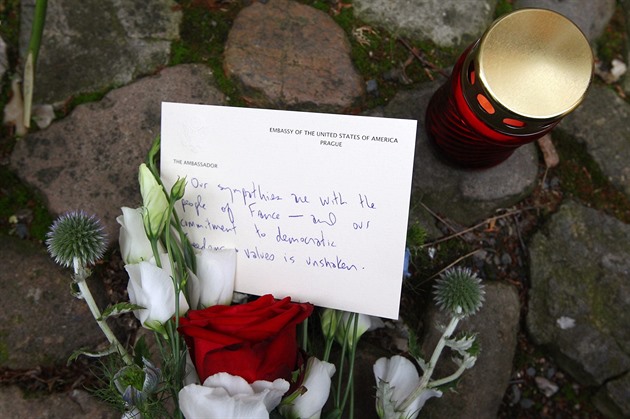 EMBASSY OF THE UNITED STATES OF AMERICA
PRAGUE
THE AMBASSADOR
Our sympathies are with the
people of France — and our
commitment to democratic
values is unshaken.